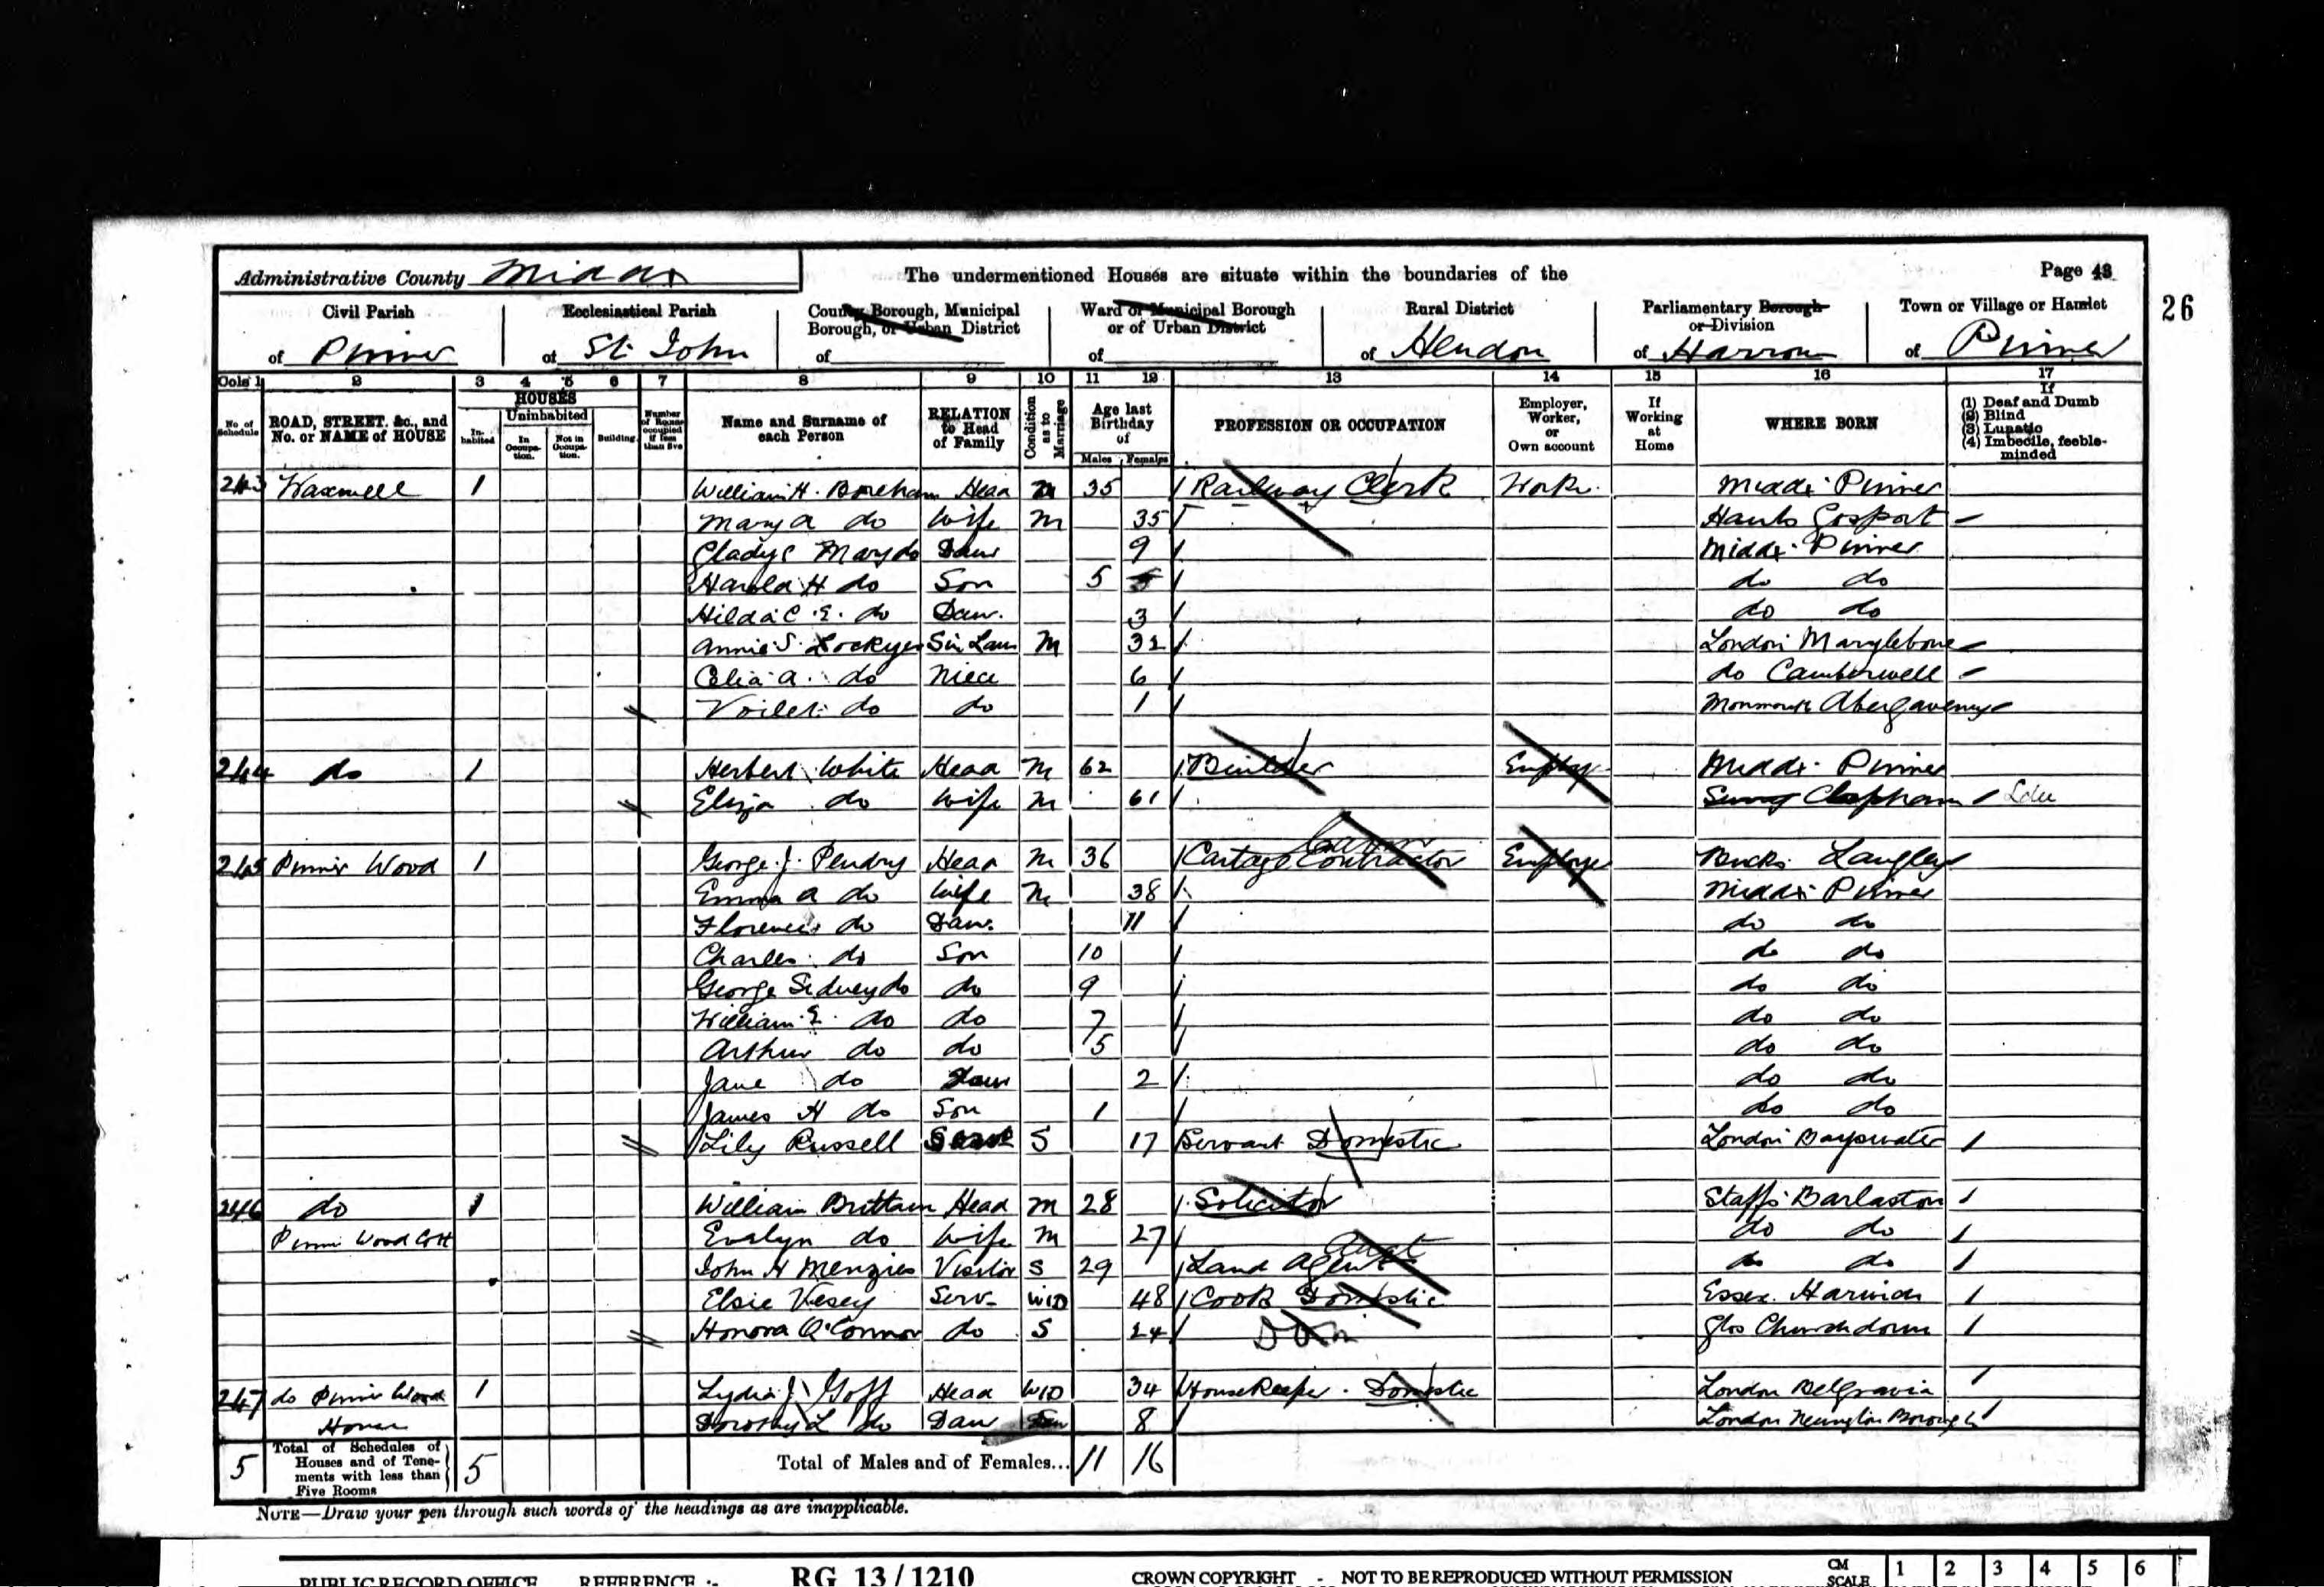 Administrative County Middx
The undermentioned Houses are situate within the boundaries of the
Page 43
26
Civil Parish
of Pinner
Ecclesiastical Parish
of St. John
County Borough, Municipal
Borough, or Urban District
of
Ward of Municipal Borough
or of Urban District
of
Rural District
of Hendon
Parliamentary Borough
or Division
of Harrow
Town or Village or Hamlet
of Pinner
Cols 1 2 3 4 5 6 7 8 9 10 11 12 13 14 15 16 17
No of Schedule
ROAD, STREET, &c., and
No. or NAME of HOUSE
HOUSES
In-habited
Uninhabited
In Occupa-tion.
Not in Occupa-tion.
Building.
Number of Rooms occupied if less than five
Name and Surname of
each Person
RELATION
to Head
of Family
Condition as to Marriage
Age last
Birthday
of
Males Females
PROFESSION OR OCCUPATION
Employer,
Worker,
or
Own account
If
Working
at
Home
WHERE BORN
If
(1) Deaf and Dumb
(2) Blind
(3) Lunatic
(4) Imbecile, feeble-
minded
243 Waxwell 1 William H. Boreham Head M 35 Railway Clerk Work. Middx. Pinner
Mary A do Wife M 35 Hants Gosport
Gladys Mary do Daur 9 Middx. Pinner
Harold H do Son 5 do do
Hilda C. E. do Daur. 3 do do
Annie S. Lockyer Sis Law M 32 London Marylebone
Celia A. do Niece 6 do Camberwell
Voilet do do 1 Monmouth Abergavenny
244 do 1 Herbert White Head M 62 Builder Employ. Middx. Pinner
Eliza do Wife M 61 Surrey Clapham
245 Pinner Wood 1 George J. Pendry Head M 36 Cartage Contractor Employer Bucks. Langley
Emma A do Wife M 38 Middx Pinner
Florence do Daur. 11 do do
Charles do Son 10 do do
George Sidney do do 9 do do
William E. do do 7 do do
Arthur do do 5 do do
Jane do Daur 2 do do
James H do Son 1 do do
Lily Russell Serv S 17 Servant Domestic London Bayswater
246 do 1 William Brittain Head M 28 Solicitor Staffs Barlaston
Pinner Wood Cott Evelyn do Wife M 27 do do
John H Menzies Visitor S 29 Land Agent do do
Elsie Vesey Serv. WID 48 Cook Domestic Essex. Harwich
Honora O'Connor do S 24 Dom Glos Churchdown
247 do Pinner Wood 1 Lydia J. Goff Head WID 34 Housekeeper. Domestic London Belgravia
House Dorothy L do Daur 8 London Newington Borough
5
Total of Schedules of
Houses and of Tene-
ments with less than
Five Rooms
5
Total of Males and of Females... 11 16
NOTE—Draw your pen through such words of the headings as are inapplicable.
PUBLIC RECORD OFFICE REFERENCE :- RG 13/1210 CROWN COPYRIGHT - NOT TO BE REPRODUCED WITHOUT PERMISSION CM SCALE 1 2 3 4 5 6